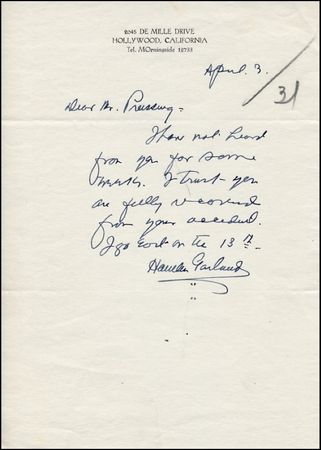 2045 DE MILLE DRIVE
HOLLYWOOD, CALIFORNIA
Tel. MOrningside 12733
April 3.
31
Dear Mr. Preussing:
I have not heard
from you for some
weeks. I trust you
are fully recovered
from your accident.
I go East on the 13th
Hamlin Garland